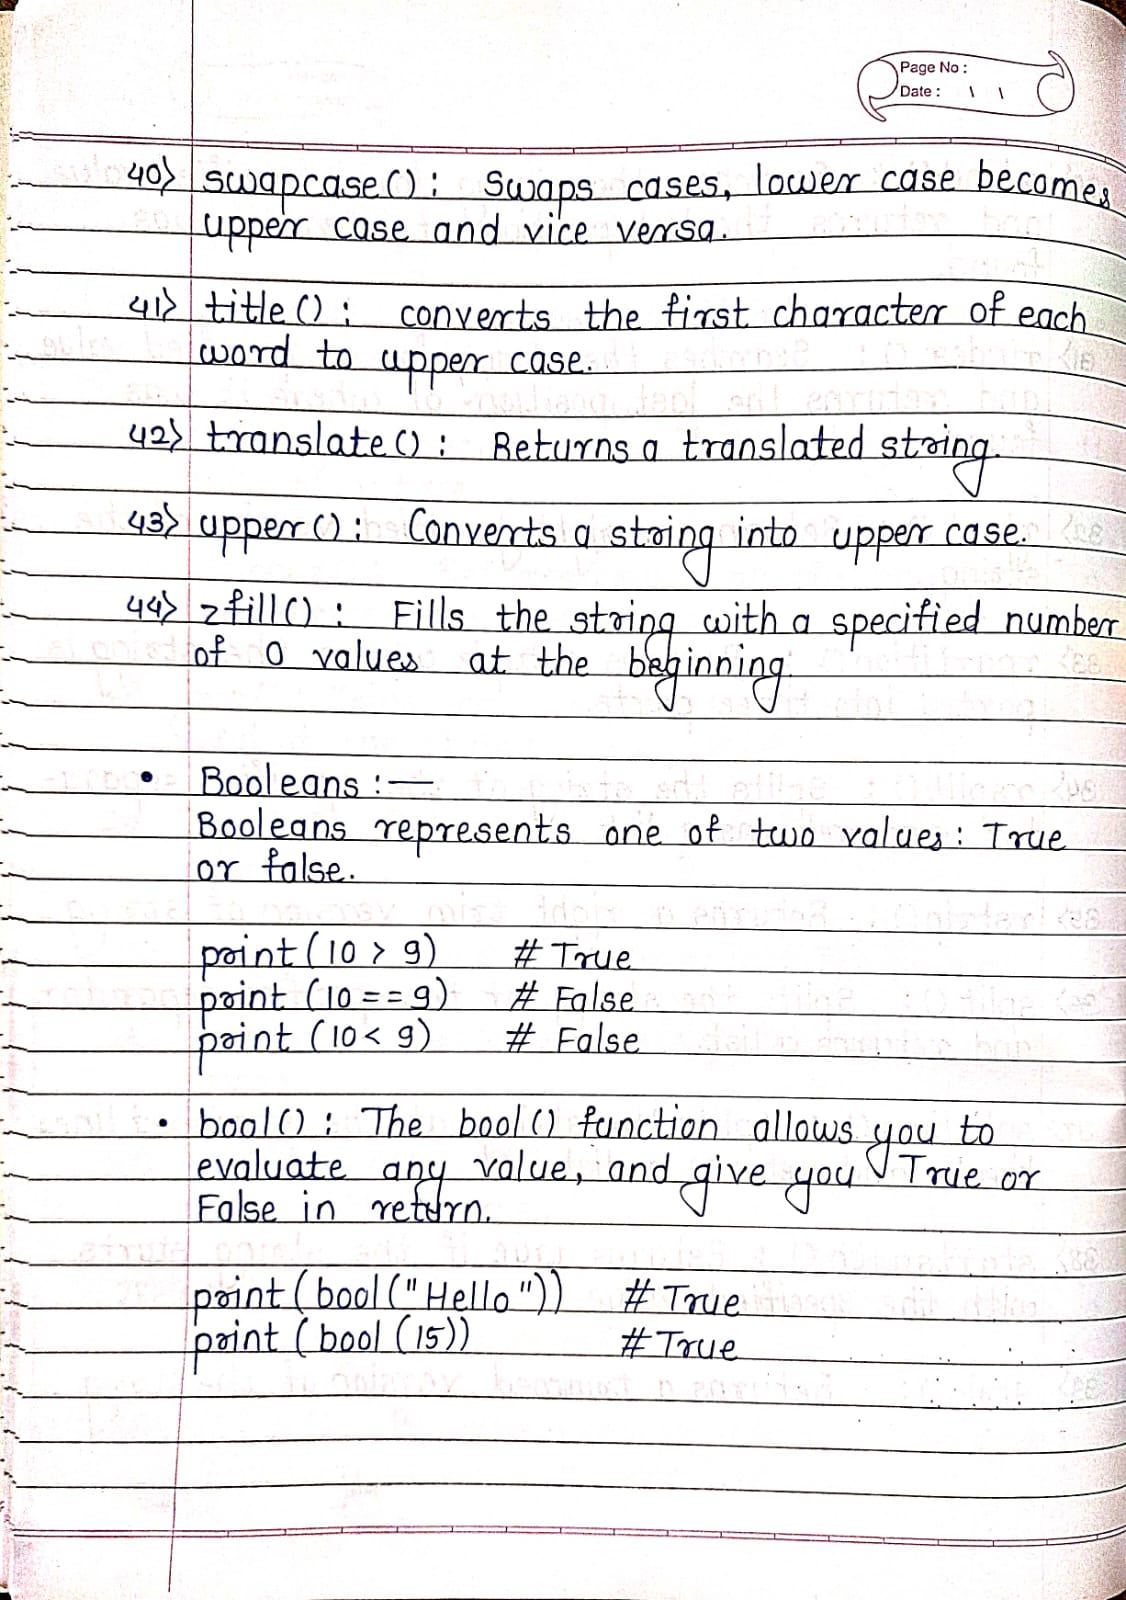 Page No :
Date : \ \
40> swapcase() : Swaps cases, lower case becomes
upper case and vice versa.
41> title() : converts the first character of each
word to upper case.
42> translate() : Returns a translated string.
43> upper() : Converts a string into upper case.
44> zfill() : Fills the string with a specified number
of 0 values at the beginning.
• Booleans :—
Booleans represents one of two values : True
or false.
print (10 > 9) # True
print (10 == 9) # False
print (10 < 9) # False
• bool() : The bool() function allows you to
evaluate any value, and give you True or
False in return.
print (bool ("Hello")) # True
print (bool (15)) # True